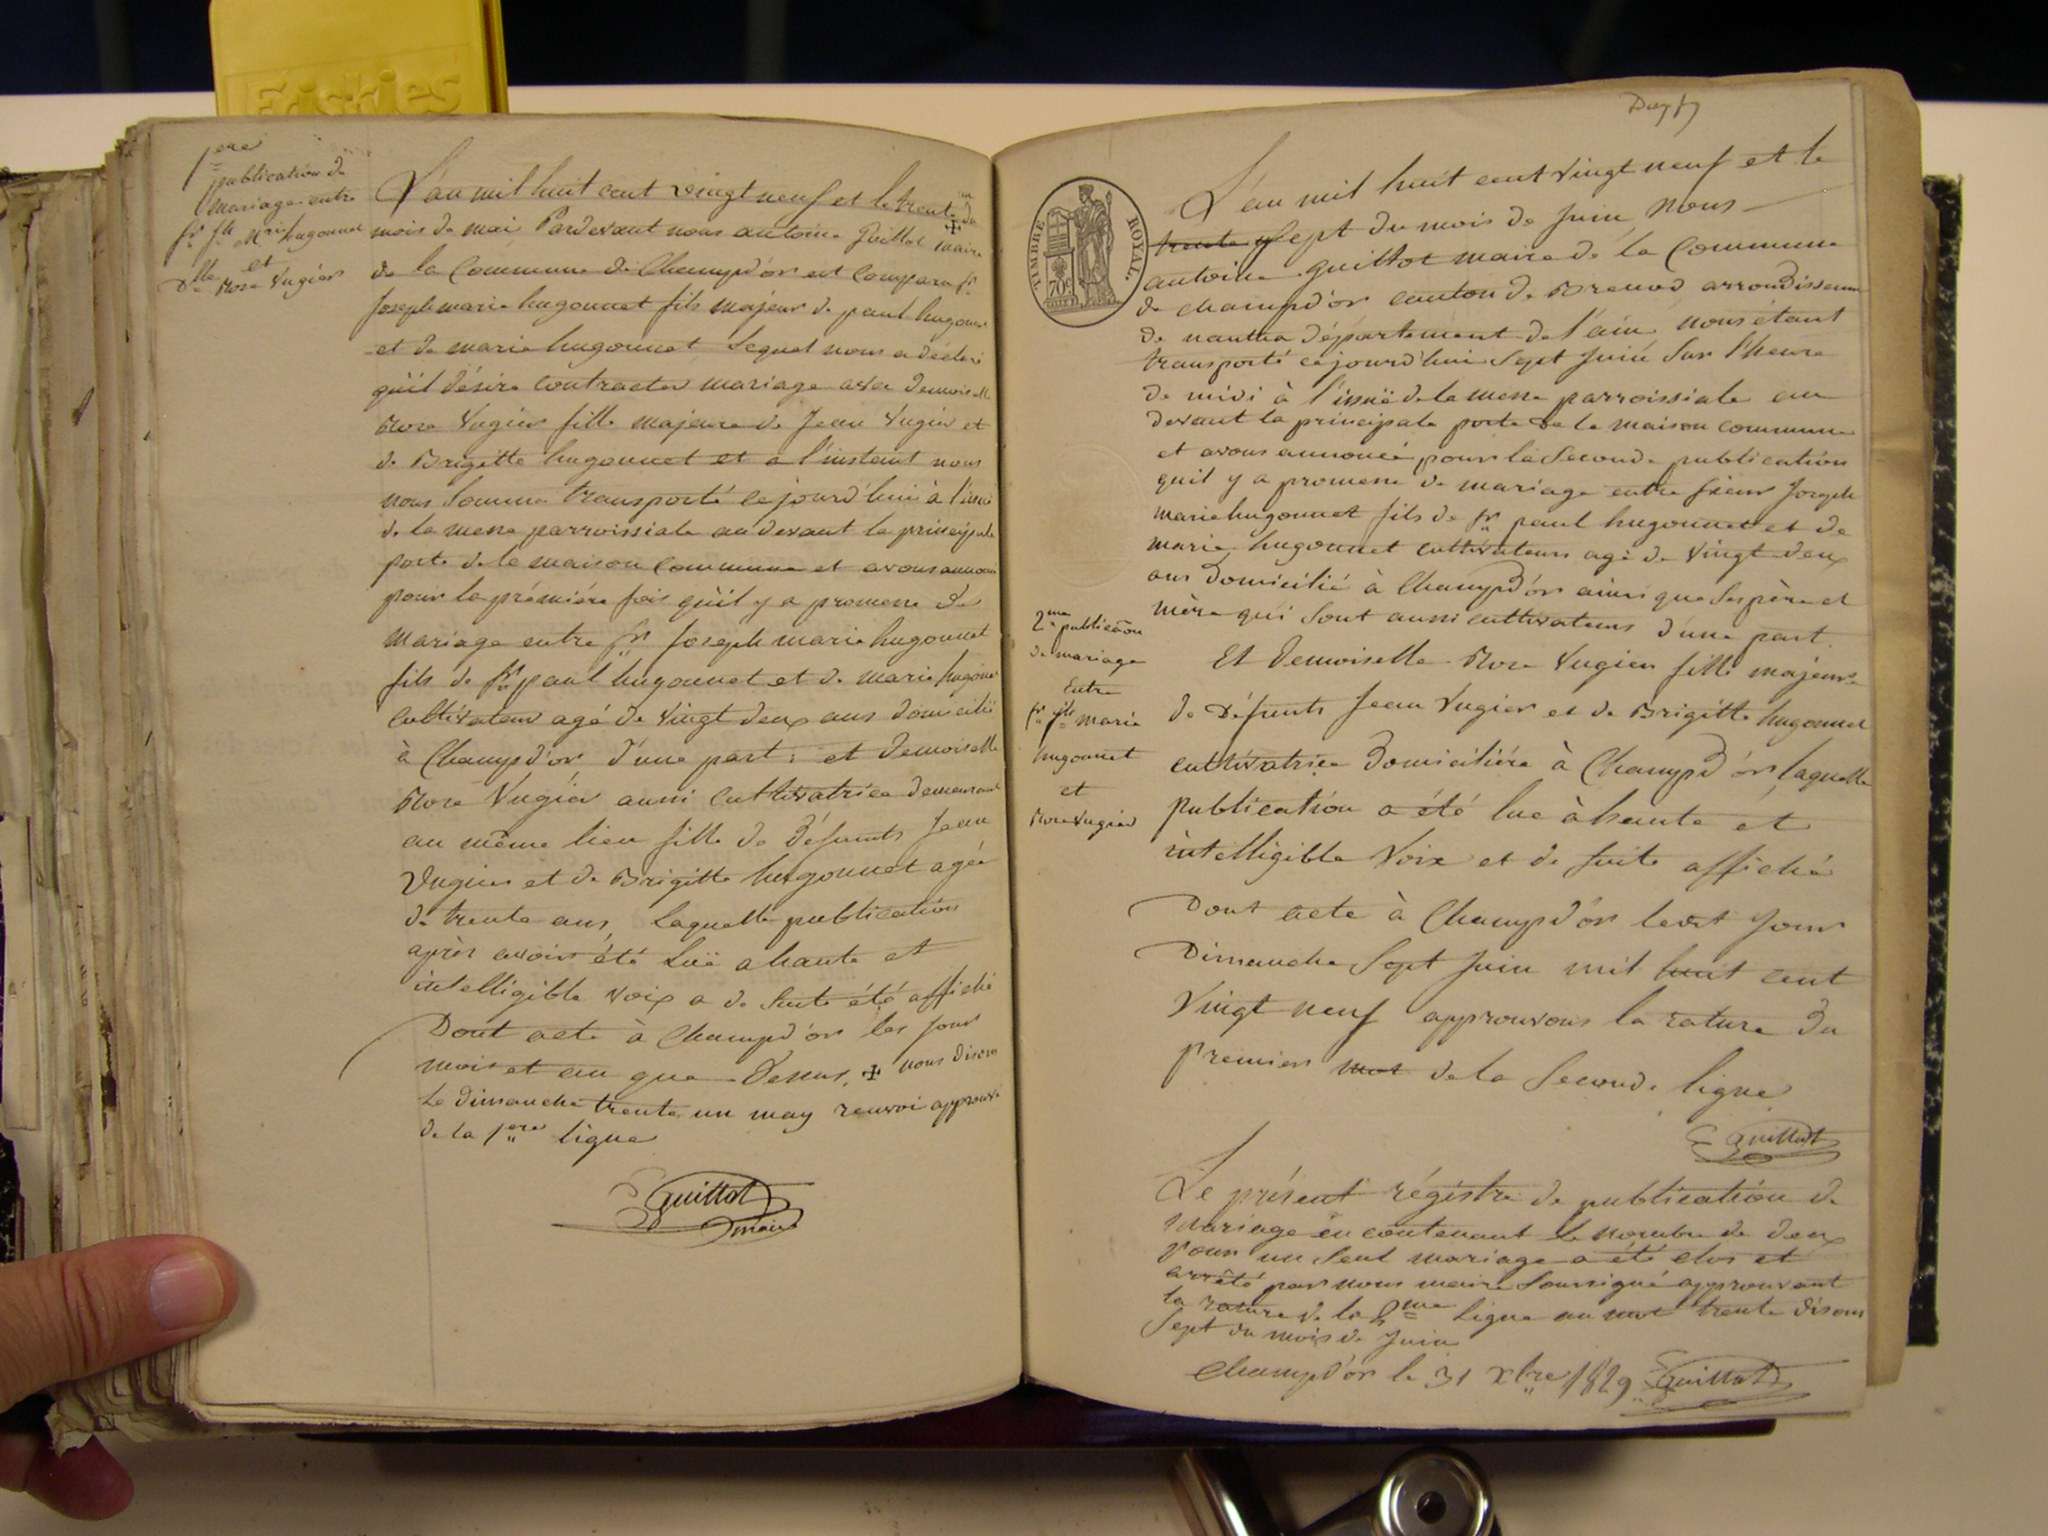 Friskies
1ere
publication de
mariage entre
sr jh Mrie hugonnet
et
Dlle Rose Vugier
L'an mil huit cent vingt neuf et le trente un du
mois de mai Pardevant nous antoine Guillot maire
de la Commune de Champd'or est Comparu sr
Joseph marie hugonnet fils majeur de paul hugonnet
et de marie hugonnet Lequel nous a déclaré
qu'il désire Contracter mariage avec demoiselle
Rose Vugier fille majeure de Jean Vugier et
de Brigitte hugonnet et a l'instant nous
nous Somme transporté cejourd'hui à l'issue
de la messe parroissiale au devant la principale
porte de la maison Commune et avons annoncé
pour la prémière fois qu'il y a promesse de
mariage entre sr Joseph marie hugonnet
fils de sr paul hugonnet et de marie hugonnet
Cultivateur agé de Vingt deux ans domicilié
à Champd'or d'une part : et demoiselle
Rose Vugier aussi Cultivatrice demeurant
au même lieu fille de défunts Jean
Vugier et de Brigitte hugonnet agée
de trente ans, Laquelle publication
après avoir été Luë a haute et
intelligible voix a de Suite été affiché
Dont acte à Champd'or les jour
mois et an que dessus, ✠ nous disons
Le dimanche trente un may renvoi approuvé
de la 1ere ligne
Guillot
maire
TIMBRE ROYAL
70c
L'an mil huit cent Vingt neuf et le
trente sept du mois de Juin, Nous
antoine Guillot maire de la Commune
de Champd'or canton de Brenod arrondissement
de nantua département de l'ain, nous étant
transporté cejourd'hui Sept Juin Sur l'heure
de midi à l'issuë de la messe parroissiale au
devant la principale porte de la maison commune
et avons annoncé pour la Seconde publication
quil y a promesse de mariage entre sieur Joseph
marie hugonnet fils de sr paul hugonnet et de
marie hugonnet cultivateur agé de Vingt deux
ans Domicilié à Champd'or ainsi que Ses père et
mère qui Sont aussi cultivateurs d'une part
2me publication
de mariage
Entre
sr jh marie
hugonnet
et
Rose Vugier
Et demoiselle Rose Vugier fille majeure
de Défunts Jean Vugier et de Brigitte hugonnet
cultivatrice Domiciliére à Champd'or, laquelle
publication a été lue à haute et
intelligible Voix et de Suite affiché
Dont acte à Champd'or ledit Jour
Dimanche Sept Juin mil huit cent
Vingt neuf approuvons la rature du
premier mot de la Seconde ligne
Guillot
Le présent régistre de publication de
Mariage en contenant le nombre de deux
pour un Seul mariage a été clos et
arrêté par nous maire Soussigné approuvant
la rature de la 2me ligne au mot trente disons
Sept du mois de Juin
Champd'or le 31 Xbre 1829
Guillot